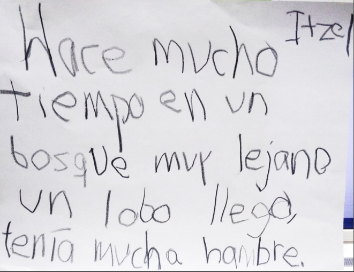 Itzel
Hace mucho
tiempo en un
bosque muy lejano
un lobo llego,
tenía mucha hambre.